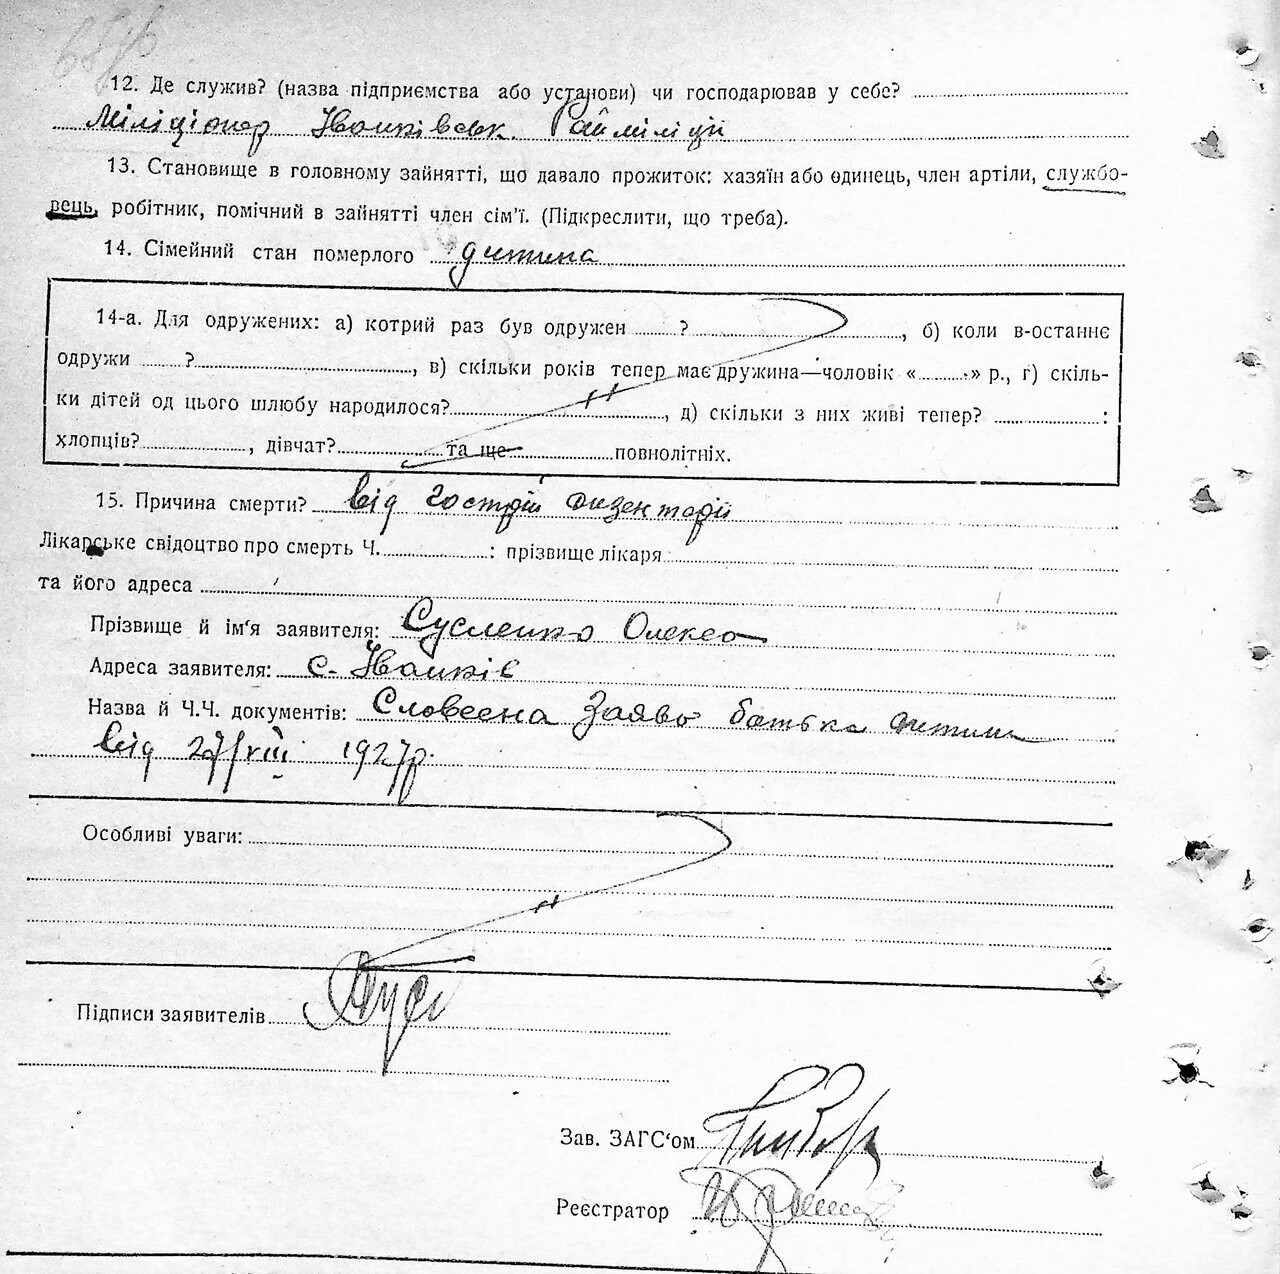 12. Де служив? (назва підприємства або установи) чи господарював у себе?
Міліціонер Іванківськ. Райміліції
13. Становище в головному зайнятті, що давало прожиток: хазяїн або одинець, член артіли, службо-
вець, робітник, помічний в зайнятті член сім'ї. (Підкреслити, що треба).
14. Сімейний стан померлого дитина
14-а. Для одружених: а) котрий раз був одружен ? , б) коли в-останнє
одружи ? , в) скільки років тепер має дружина—чоловік « » р., г) скіль-
ки дітей од цього шлюбу народилося? , д) скільки з них живі тепер? :
хлопців? , дівчат? та ще повнолітніх.
15. Причина смерти? від гострій дизентерії
Лікарське свідоцтво про смерть Ч. : прізвище лікаря
та його адреса
Прізвище й ім'я заявителя: Сусленко Олекса
Адреса заявителя: с. Іванків
Назва й Ч.Ч. документів: Словесна заява батька дитини
від 27/VIII 1927р.
Особливі уваги:
Підписи заявителів
Зав. ЗАГС'ом
Реєстратор